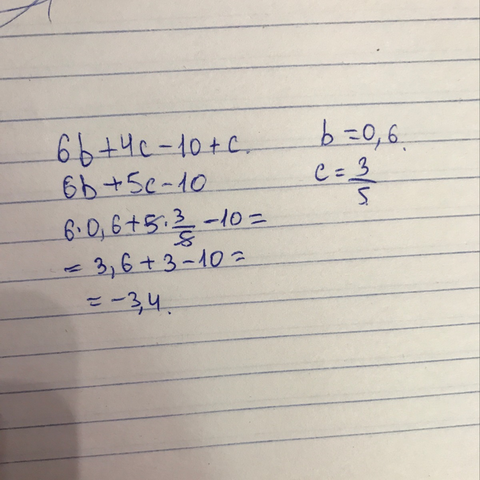 6b+4c-10+c.
6b+5c-10
6·0,6+5·3/5-10=
=3,6+3-10=
=-3,4.
b=0,6.
c=3/5